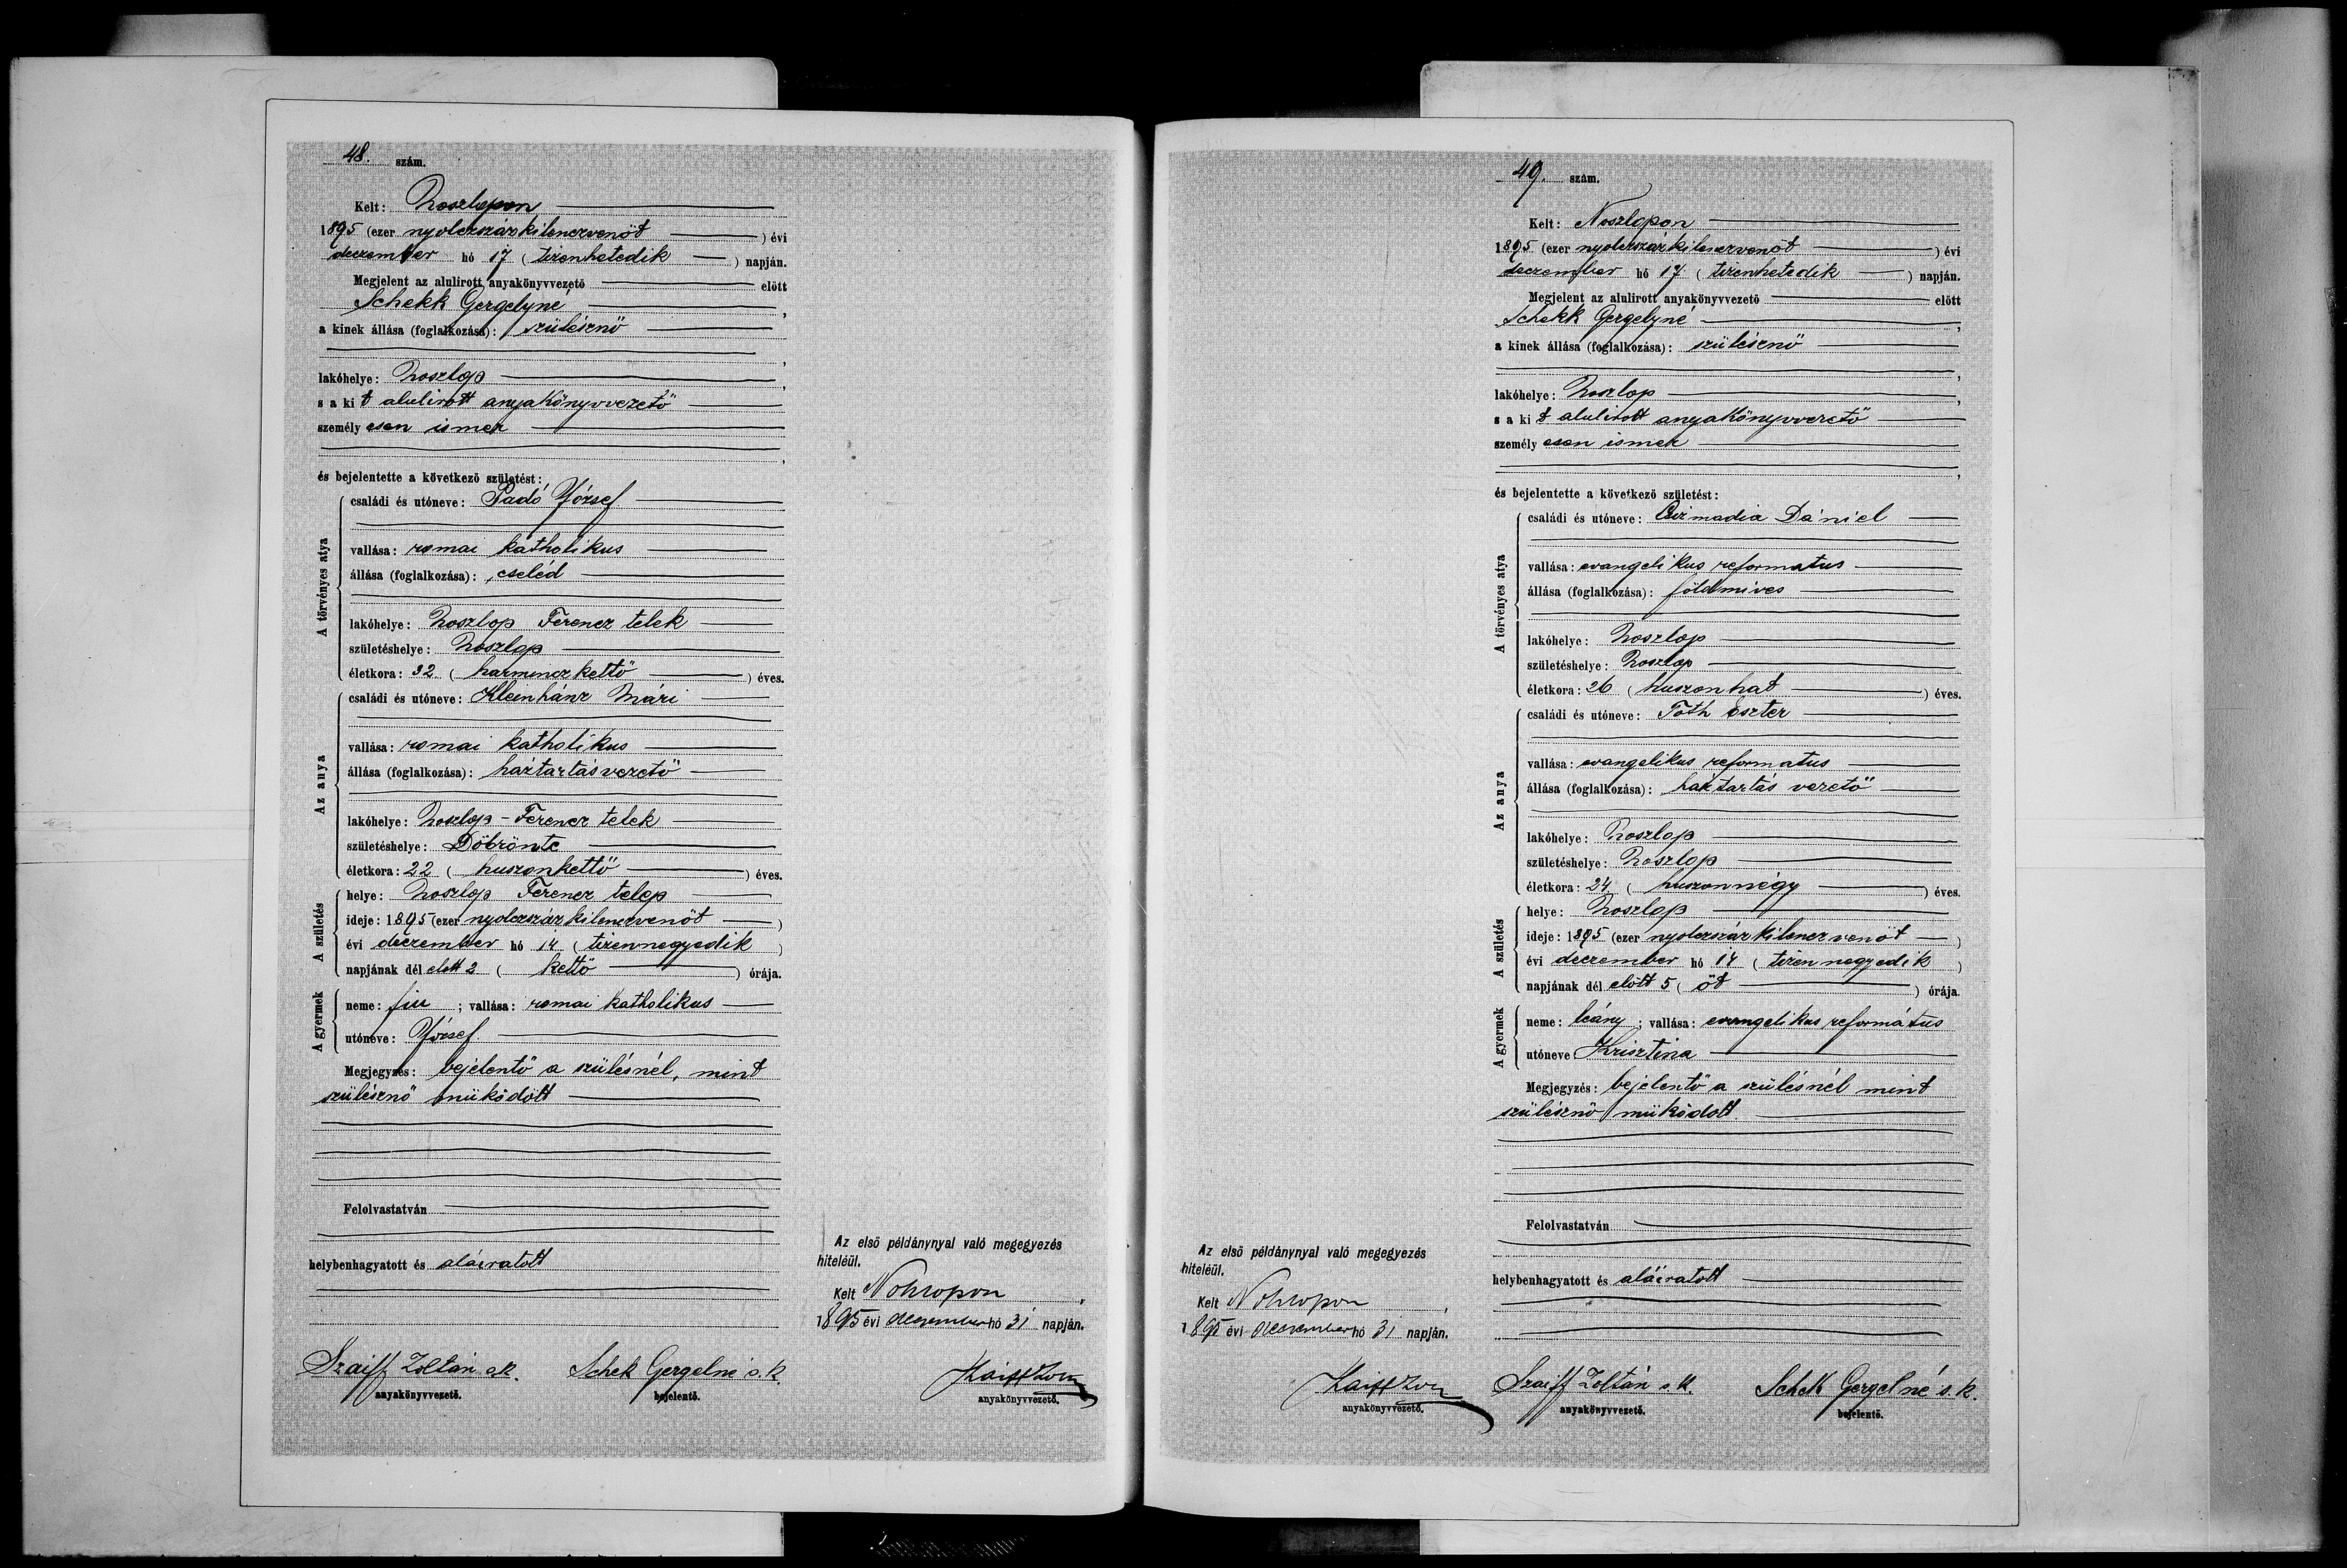 48. szám.
Kelt: Noszlopon
1895 (ezer nyolczszázkilenczvenöt) évi
deczember hó 17 (tizenhetedik) napján.
Megjelent az alulirott anyakönyvvezető előtt
Schekk Gergelyné,
a kinek állása (foglalkozása): szülésznő
,
lakóhelye: Noszlop,
s a kit alulirott anyakönyvvezető
személyesen ismer
,
és bejelentette a következő születést:
A törvényes atya
családi és utóneve: Padó József
vallása: romai katholikus
állása (foglalkozása): cseléd
lakóhelye: Noszlop Ferencz telek
születéshelye: Noszlop
életkora: 32 (harminczkettő) éves.
Az anya
családi és utóneve: Kleinhánz Mári
vallása: romai katholikus
állása (foglalkozása): háztartásvezető
lakóhelye: Noszlop - Ferencz telek
születéshelye: Döbrönte
életkora: 22 (huszonkettő) éves.
A születés
helye: Noszlop Ferencz telep
ideje: 1895 (ezer nyolczszázkilenczvenöt)
évi deczember hó 14 (tizennegyedik)
napjának dél elött 2 (kettő) órája.
A gyermek
neme: fiu; vallása: romai katholikus
utóneve: József.
Megjegyzés: bejelentő a szülésnél, mint
szülésznő müködött
Felolvastatván
helybenhagyatott és aláiratott
Szaiff Zoltán s.k. Schek Gergelné s.k.
anyakönyvvezető. bejelentő.
Az első példánynyal való megegyezés
hiteléül.
Kelt
1895 évi deczember hó 31 napján.
anyakönyvvezető.
49. szám.
Kelt: Noszlopon
1895 (ezer nyolczszázkilenczvenöt) évi
deczember hó 17 (tizenhetedik) napján.
Megjelent az alulirott anyakönyvvezető előtt
Schekk Gergelyné,
a kinek állása (foglalkozása): szülésznő
,
lakóhelye: Noszlop,
s a kit alulirott anyakönyvvezető
személyesen ismer
,
és bejelentette a következő születést:
A törvényes atya
családi és utóneve: Csizmadia Dániel
vallása: evangelikus reformatus
állása (foglalkozása): földmives
lakóhelye: Noszlop
születéshelye: Noszlop
életkora: 26 (huszonhat) éves.
Az anya
családi és utóneve: Tóth Eszter
vallása: evangelikus reformatus
állása (foglalkozása): háztartás vezető
lakóhelye: Noszlop
születéshelye: Noszlop
életkora: 24 (huszonnégy) éves.
A születés
helye: Noszlop
ideje: 1895 (ezer nyolczszázkilenczvenöt)
évi deczember hó 14 (tizennegyedik)
napjának dél elött 5 (öt) órája.
A gyermek
neme: leány; vallása: evangelikus református
utóneve Krisztina
Megjegyzés: bejelentő a szülésnél mint
szülésznő müködött
Felolvastatván
helybenhagyatott és aláiratott
Az első példánynyal való megegyezés
hiteléül.
Kelt
1895 évi deczember hó 31 napján.
anyakönyvvezető.
Szaiff Zoltán s.k. Schek Gergelné s.k.
anyakönyvvezető. bejelentő.